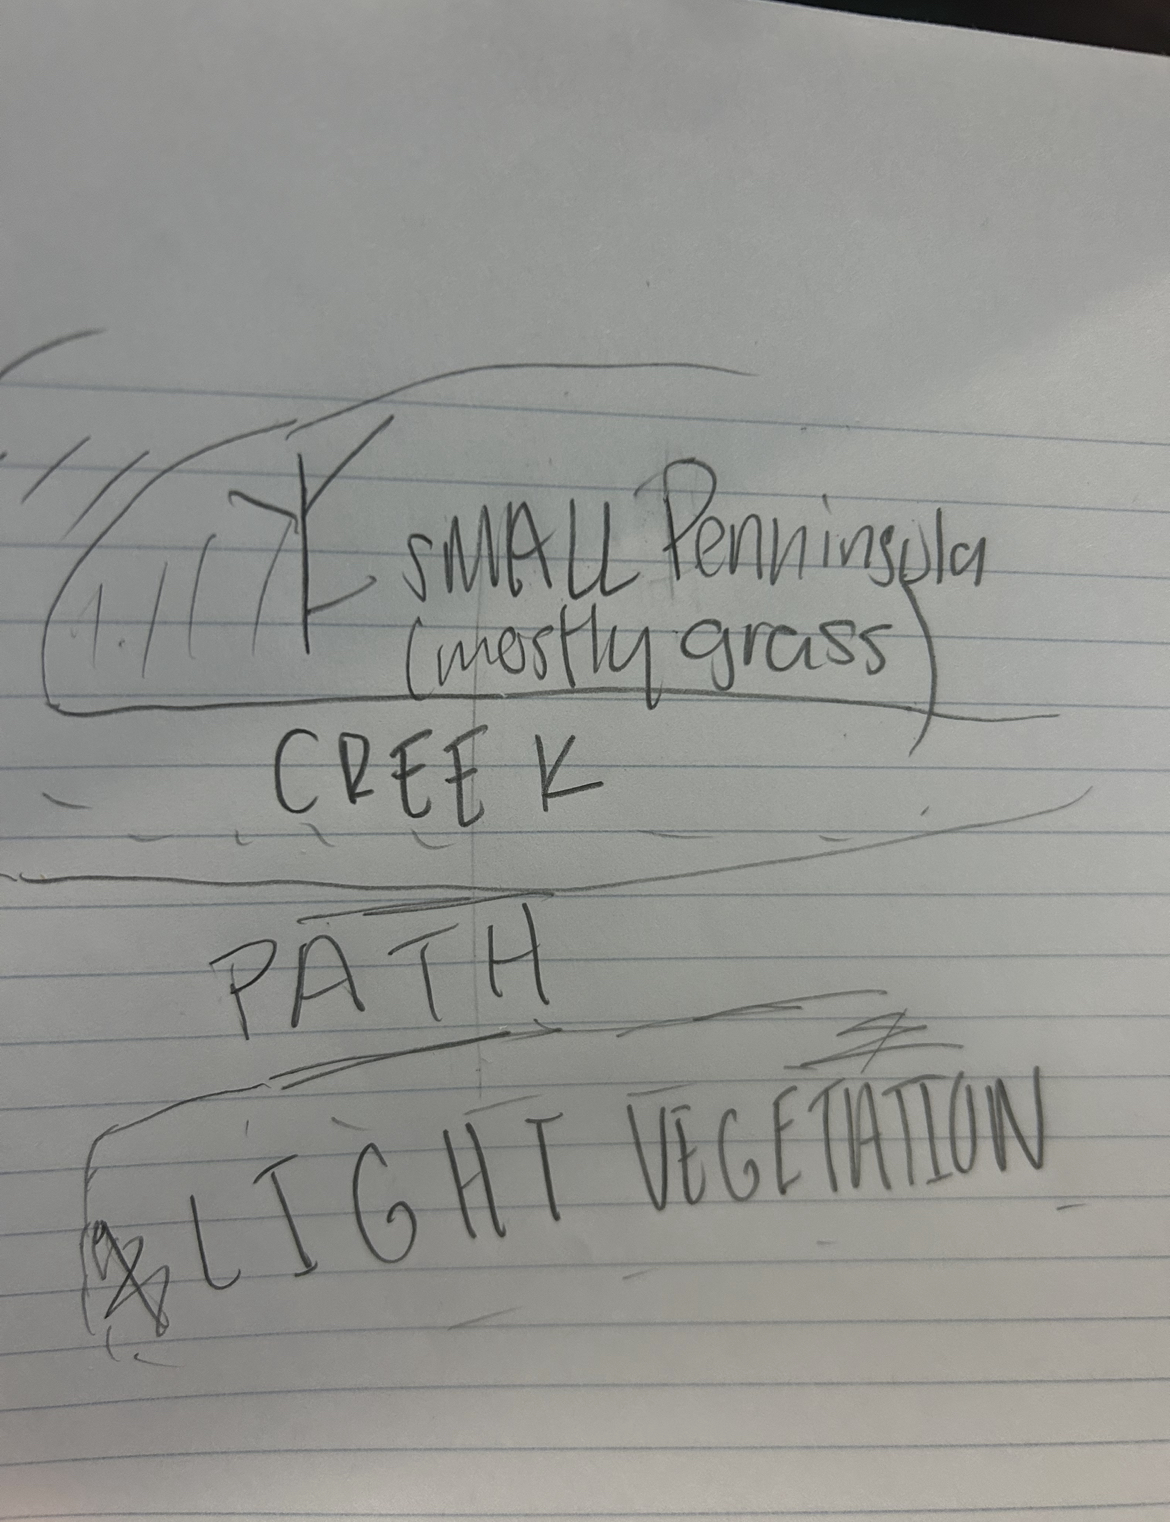 sMALL Penninsula
(mostly grass)
CREEK
PATH
LIGHT VEGETATION